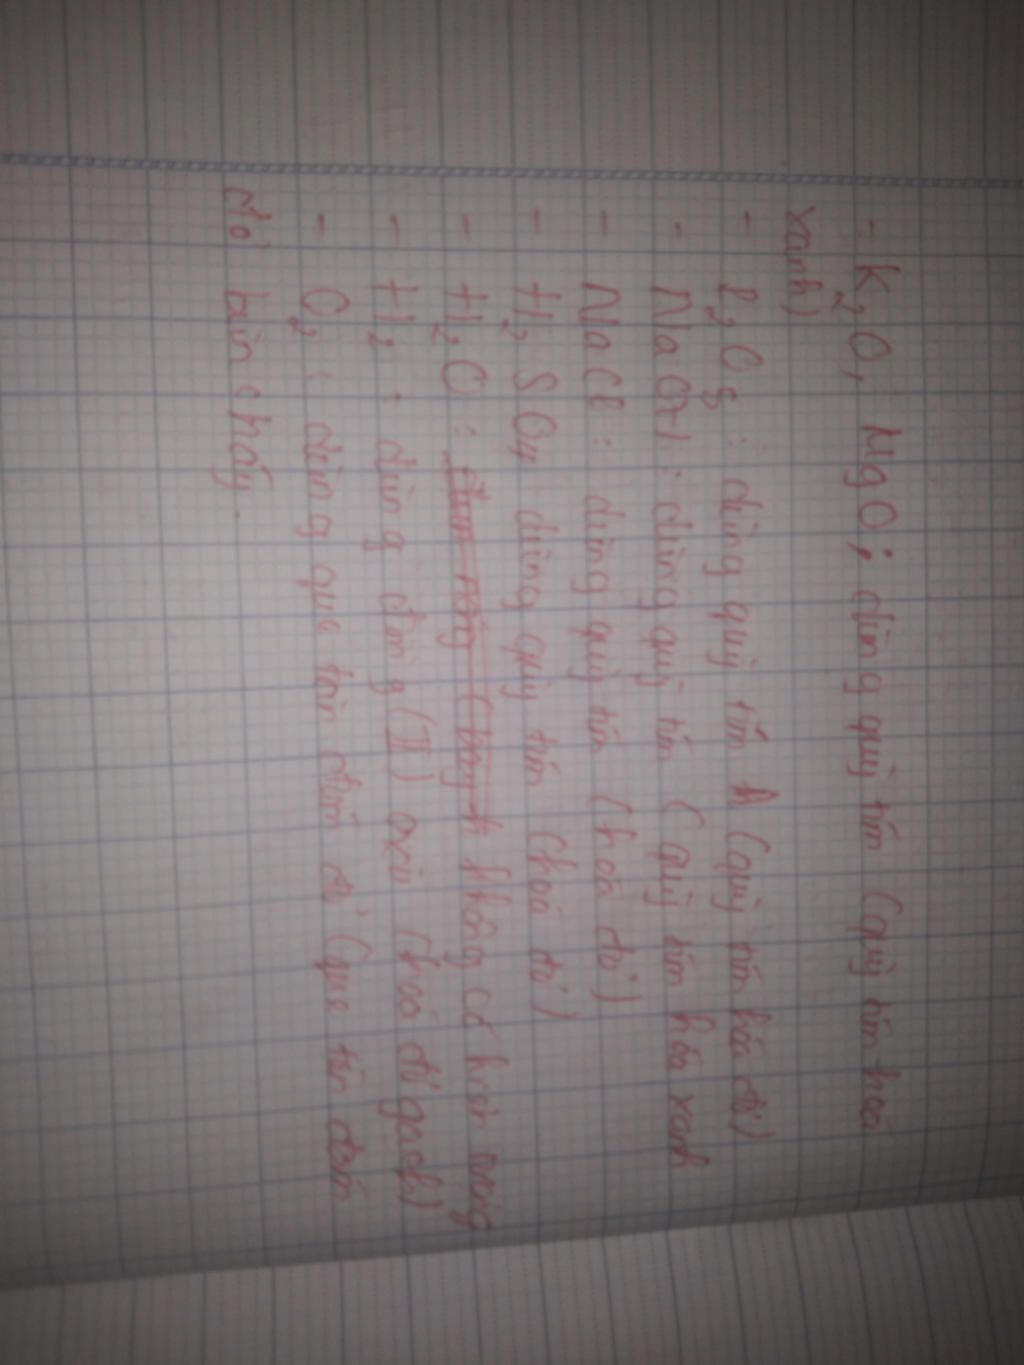 - K₂O, MgO; dùng quỳ tím (quỳ tím hoá
xanh)
- P₂O₅: dùng quỳ tím (quỳ tím hóa đỏ)
- NaOH: dùng quỳ tím (quỳ tím hóa xanh
- NaCl: dùng quỳ tím (hoá đỏ)
- H₂SO₄ dùng quỳ tím (hoá đỏ)
- H₂O: không có hiện tượng
- H₂: dùng đồng (II) oxit (hoá đỏ gạch)
- O₂: dùng que tàn đóm đỏ (que tàn đóm
đỏ bùn cháy.